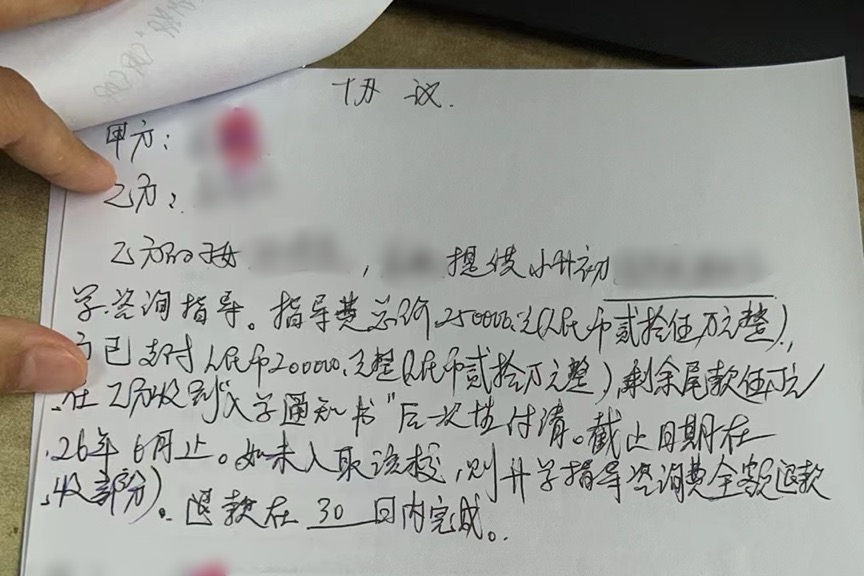 协 议.
甲方:
乙方:
乙方的子女 , 提供小升初
学咨询指导。指导费总价250000.元(人民币贰拾伍万元整),
方已支付人民币200000.元整(人民币贰拾万元整),剩余尾款伍万元
在乙方收到"入学通知书"后一次性付清。截止日期在
26年6月止。如未入取该校,则升学指导咨询费全额退款
收部分)。退款在 30 日内完成。